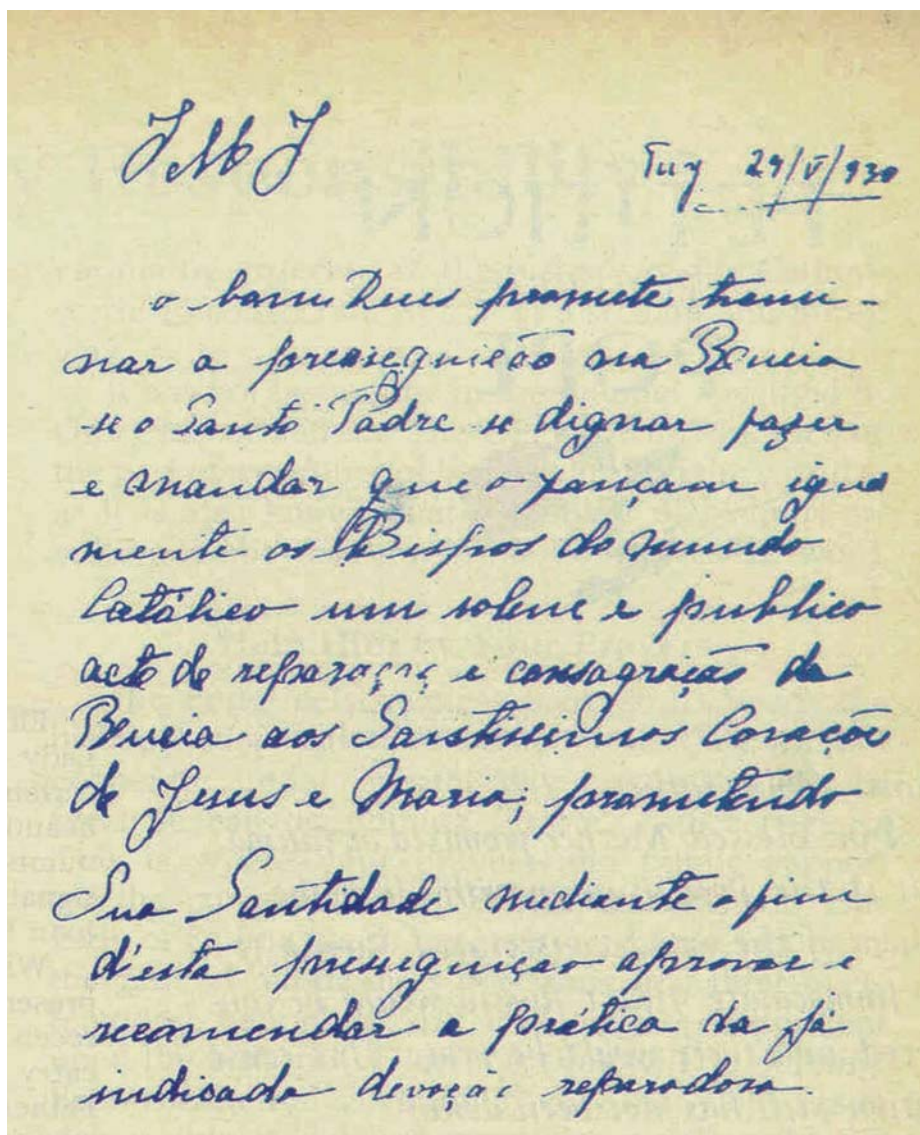 J M J
Tuy 29/V/930
o bom Deus promete tremi-
nar a presseguição na Rucia
se o Santo Padre se dignar fazer
e mandar que o fançam igua
mente os Bispos do mundo
Católico um solene e publico
acto de reparação e consagração da
Rucia aos Santissimos Corações
de Jesus e Maria; prometendo
Sua Santidade mediante o fim
d'esta presseguiçao aprovar e
recomendar a prática da já
indicada devoção reparadora.